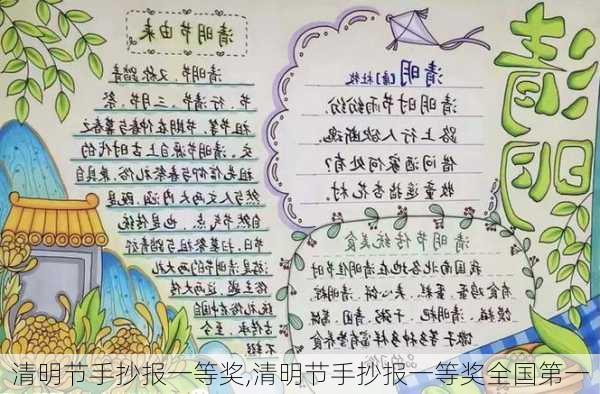 清明节由来
清明节，又称踏青
节、行清节、三月节、祭
祖节等，节期在仲春与暮春之
交。清明节源自上古时代的
祖先信仰与春祭礼俗，兼具自
然与人文两大内涵，既是
自然节气点，也是传统
节日，扫墓祭祖与踏青郊
游是清明节的两大礼
俗主题，这两大传
统礼俗在中国自
古传承，
至今
不辍
清明 [唐]杜牧
清明时节雨纷纷
路上行人欲断魂。
借问酒家何处有？
牧童遥指杏花村。
清明
清明节传统美食
我国南北各地在清明佳节时
有食鸡蛋、蛋糕、夹心饼、清明粽、
馍糍、清明粑、干粥、青团、
馓子等多种多样富有营养食
品的习俗
清明节手抄报一等奖,清明节手抄报一等奖全国第一